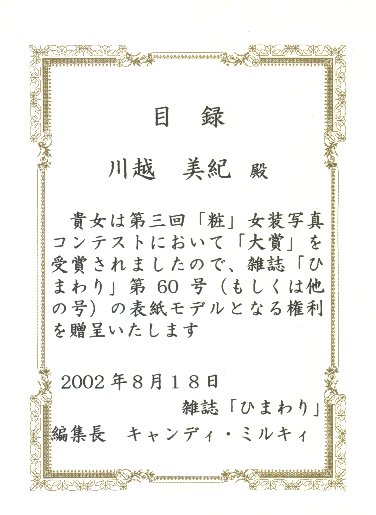 目 録
川越 美紀 殿
貴女は第三回「粧」女装写真
コンテストにおいて「大賞」を
受賞されましたので、雑誌「ひ
まわり」第60号（もしくは他
の号）の表紙モデルとなる権利
を贈呈いたします
2002年8月18日
雑誌「ひまわり」
編集長 キャンディ・ミルキィ